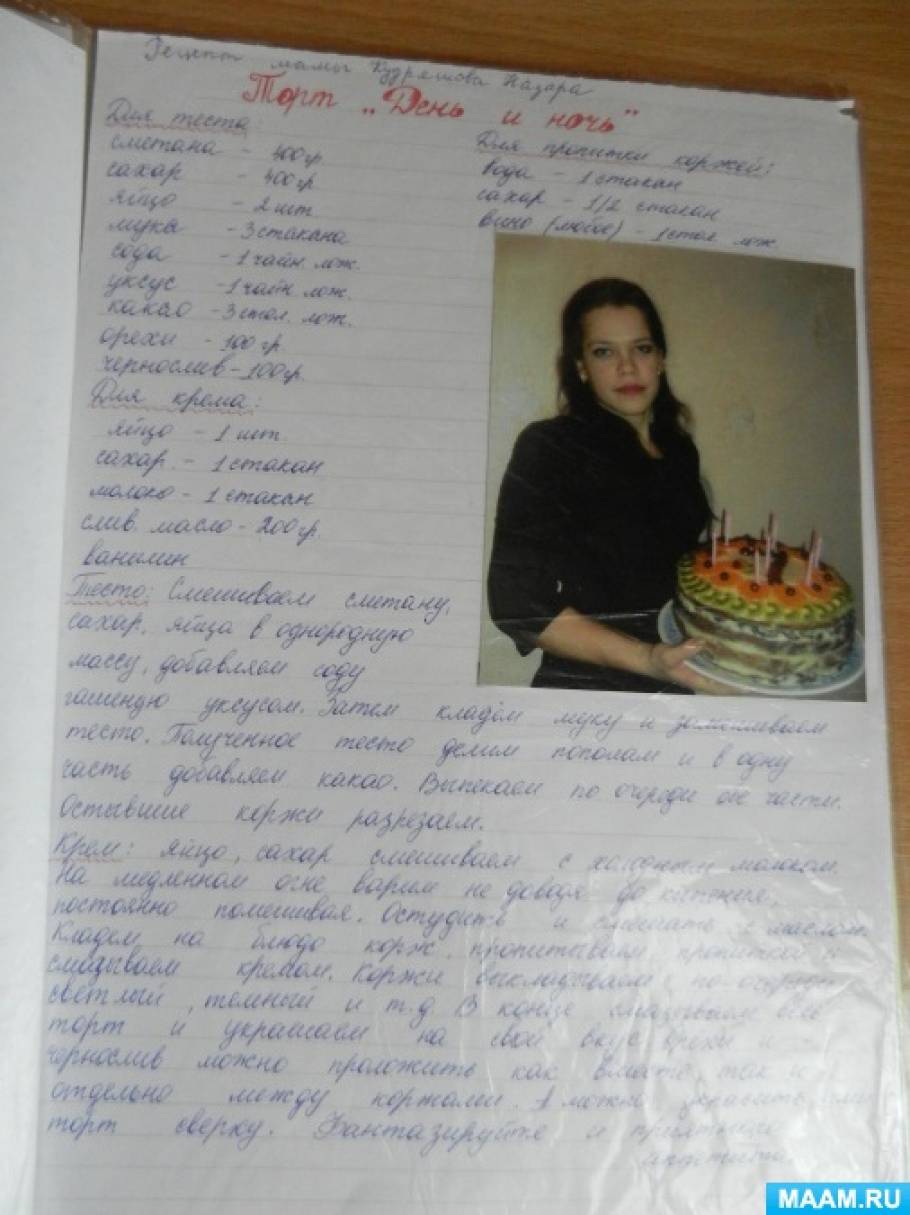 Рецепт мамы Кудряшова Назара
Торт „День и ночь"
Для теста:
сметана - 400гр
сахар - 400гр
яйцо - 2 шт
мука - 3 стакана
сода - 1 чайн. лож.
уксус - 1 чайн. лож.
какао - 3 стол. лож.
орехи - 100 гр.
чернослив - 100гр.
Для крема:
яйцо - 1 шт.
сахар - 1 стакан
молоко - 1 стакан
слив. масло - 200гр.
ванилин
Для пропитки коржей:
вода - 1 стакан
сахар - 1/2 стакан
вино (любое) - 1 стол. лож.
Тесто: Смешиваем сметану,
сахар, яйца в однородную
массу, добавляем соду
гашеную уксусом. Затем кладём муку и замешиваем
тесто. Полученное тесто делим пополам и в одну
часть добавляем какао. Выпекаем по очереди обе части.
Остывшие коржи разрезаем.
Крем: яйцо, сахар смешиваем с холодным молоком.
На медленном огне варим не доводя до кипения,
постоянно помешивая. Остудить и смешать с маслом.
Кладем на блюдо корж, пропитываем пропиткой и
смазываем кремом. Коржи выкладываем по очереди
светлый, темный и т.д. В конце смазываем весь
торт и украшаем на свой вкус. Орехи и
чернослив можно проложить как вместе, так и
отдельно между коржами. А можно украсить ими
торт сверху. Фантазируйте и приятного
аппетита.
MAAM.RU